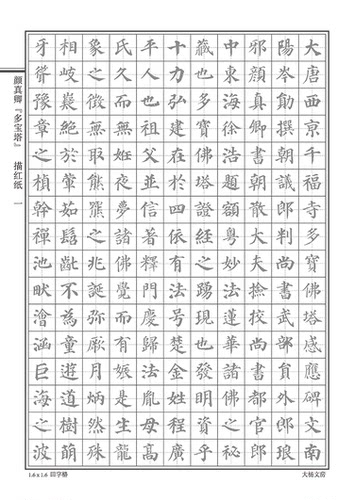 大唐西京千福寺多寶佛塔感應碑文南
陽岑勛撰朝議郎判尚書武部員外郎琅
邪顏真卿書朝散大夫撿校尚書都官郎
中東海徐浩題額粵妙法蓮華諸佛之秘
藏也多寶佛塔證經之踴現也發明資乎
十力弘建在於四依有法号楚金姓程廣
平人也祖父並信著釋門慶歸法胤母高
氏久而無妊夜夢諸佛覺而有娠是生龍
象之徵無取熊羆之兆誕彌厥月炳然殊
相岐嶷絕於葷茹髫齔不為童遊道樹萌
牙聳豫章之楨幹禪池畎澮涵巨海之波
颜真卿『多宝塔』 描红纸 一
1.6x1.6 回字格